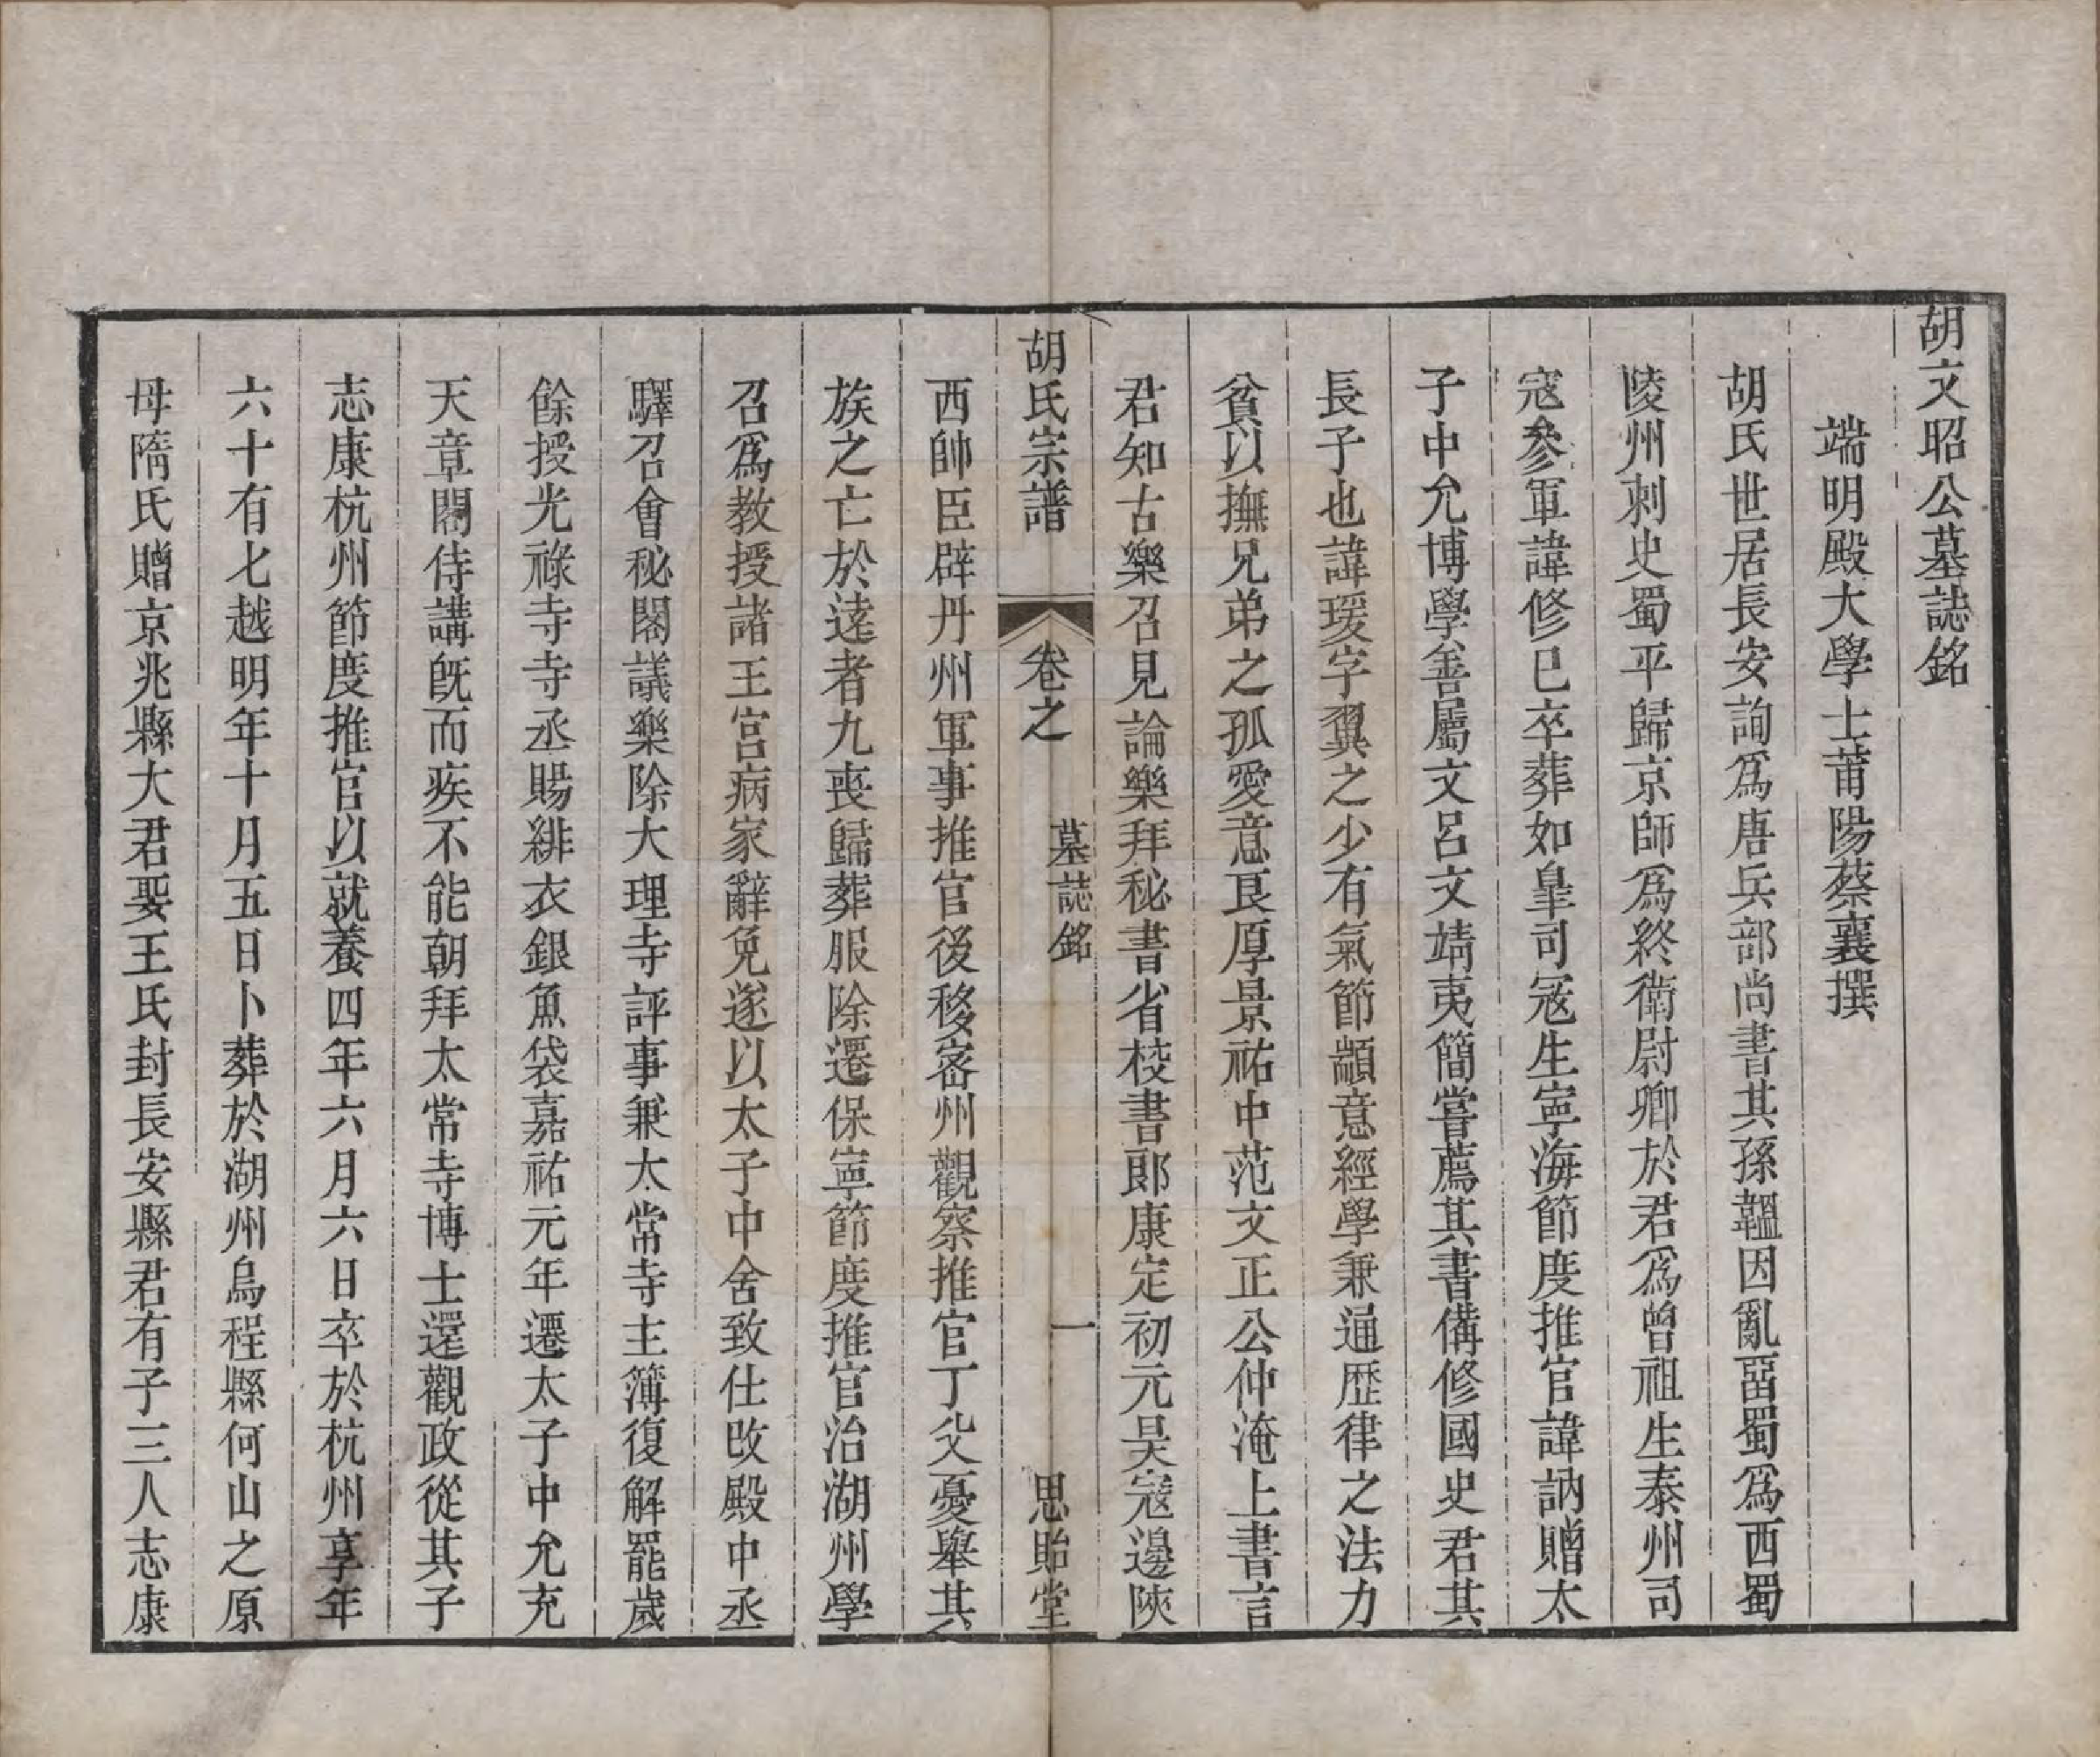 胡文昭公墓誌銘
端明殿大學士莆陽蔡襄撰
胡氏世居長安詢爲唐兵部尚書其孫韞因亂畱蜀爲西蜀
陵州刺史蜀平歸京師爲終衛尉卿於君爲曾祖生泰州司
寇參軍諱修已卒葬如皐司寇生寧海節度推官諱訥贈太
子中允博學善屬文呂文靖夷簡嘗薦其書俻修國史君其
長子也諱瑗字翼之少有氣節顓意經學兼通歴律之法力
貧以撫兄弟之孤愛意艮厚景祐中范文正公仲淹上書言
君知古樂召見論樂拜秘書省校書郞康定初元昊寇邊陝
胡氏宗譜 卷之 墓誌銘 一 思貽堂
西帥臣辟丹州軍事推官後移密州觀察推官丁父憂舉其
族之亡於逺者九喪歸葬服除遷保寧節度推官治湖州學
召爲教授諸王宮病家辭免遂以太子中舍致仕改殿中丞
驛召會秘閣議樂除大理寺評事兼太常寺主簿復解罷歲
餘授光祿寺寺丞賜緋衣銀魚袋嘉祐元年遷太子中允充
天章閣侍講旣而疾不能朝拜太常寺博士還觀政從其子
志康杭州節度推官以就養四年六月六日卒於杭州享年
六十有七越明年十月五日卜葬於湖州烏程縣何山之原
母隋氏贈京兆縣大君娶王氏封長安縣君有子三人志康